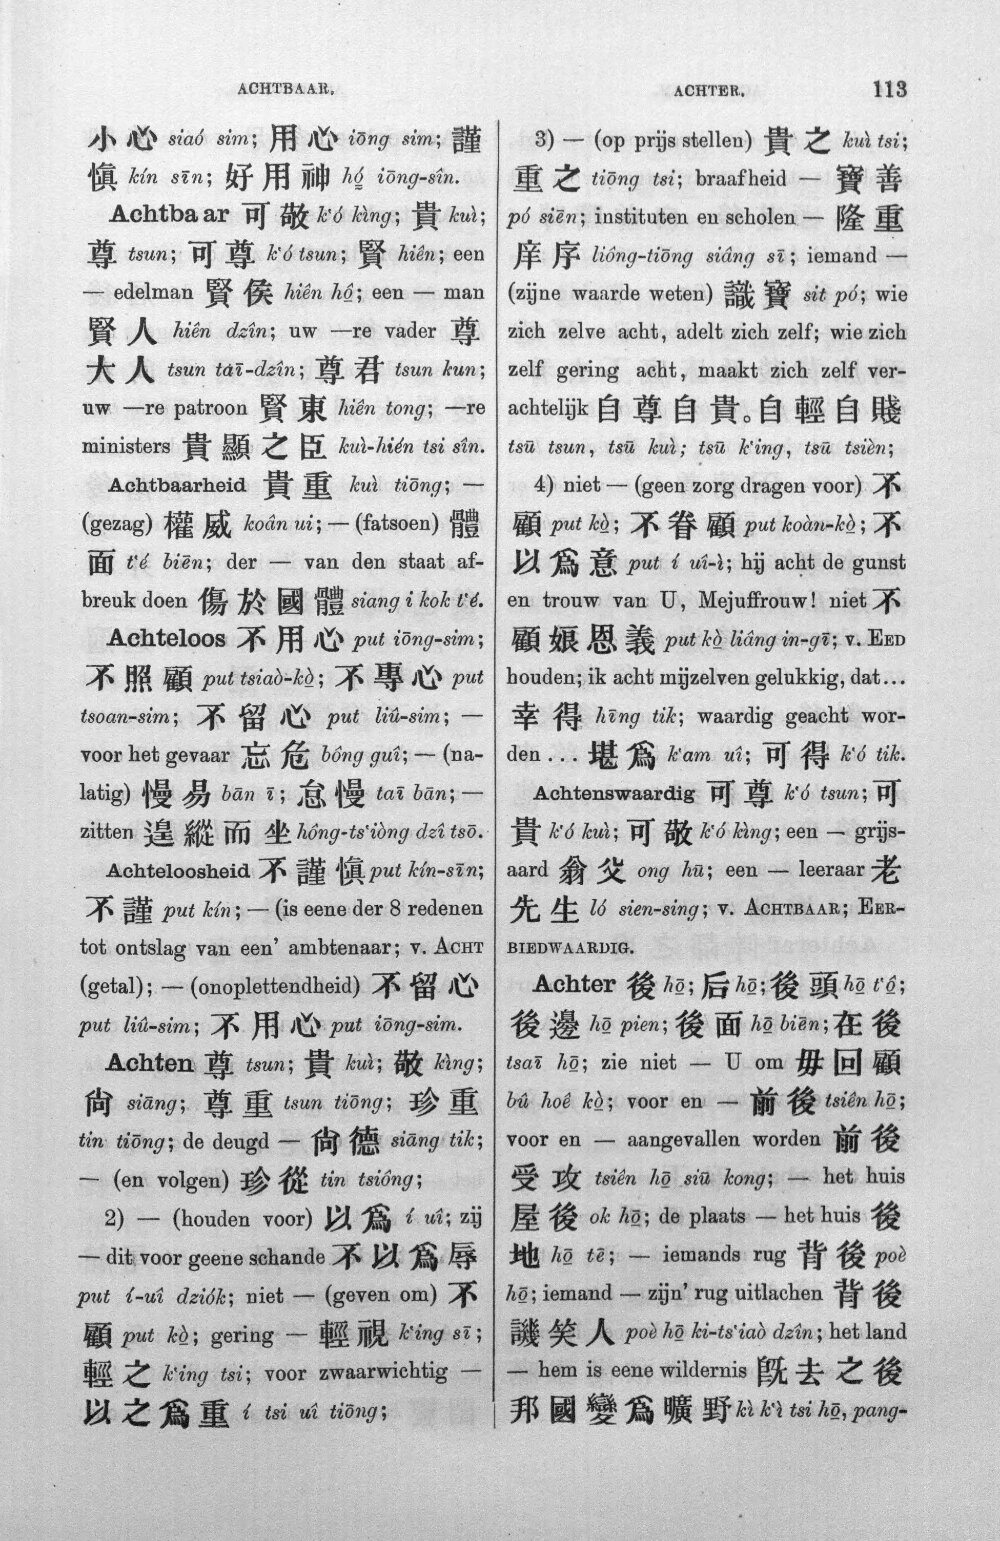 ACHTBAAR.
ACHTER.
113
小心 siaó sim; 用心 iōng sim; 謹
愼 kín sīn; 好用神 hó̤ iōng-sîn.
Achtbaar 可敬 k'ó kìng; 貴 kuì;
尊 tsun; 可尊 k'ó tsun; 賢 hiên; een
— edelman 賢侯 hiên hô̤; een — man
賢人 hiên dzîn; uw —re vader 尊
大人 tsun taī-dzîn; 尊君 tsun kun;
uw —re patroon 賢東 hiên tong; —re
ministers 貴顯之臣 kuì-hién tsi sîn.
Achtbaarheid 貴重 kuì tiōng; —
(gezag) 權威 koân ui; — (fatsoen) 體
面 t'é biēn; der — van den staat af-
breuk doen 傷於國體 siang i kok t'é.
Achteloos 不用心 put iōng-sim;
不照顧 put tsiaò-kò̤; 不專心 put
tsoan-sim; 不留心 put liû-sim; —
voor het gevaar 忘危 bông guî; — (na-
latig) 慢易 bān ī; 怠慢 taī bān; —
zitten 遑縱而坐 hông-ts'iòng dzî tsō.
Achteloosheid 不謹愼 put kín-sīn;
不謹 put kín; — (is eene der 8 redenen
tot ontslag van een' ambtenaar; v. ACHT
(getal); — (onoplettendheid) 不留心
put liû-sim; 不用心 put iōng-sim.
Achten 尊 tsun; 貴 kuì; 敬 kìng;
尙 siāng; 尊重 tsun tiōng; 珍重
tin tiōng; de deugd — 尙德 siāng tik;
— (en volgen) 珍從 tin tsiông;
2) — (houden voor) 以爲 í uî; zij
— dit voor geene schande 不以爲辱
put í-uî dziók; niet — (geven om) 不
顧 put kò̤; gering — 輕視 k'ing sī;
輕之 k'ing tsi; voor zwaarwichtig —
以之爲重 í tsi uî tiōng;
3) — (op prijs stellen) 貴之 kuì tsi;
重之 tiōng tsi; braafheid — 寶善
pó siēn; instituten en scholen — 隆重
庠序 liông-tiōng siâng sī; iemand —
(zijne waarde weten) 識寶 sit pó; wie
zich zelve acht, adelt zich zelf; wie zich
zelf gering acht, maakt zich zelf ver-
achtelijk 自尊自貴。自輕自賤
tsū tsun, tsū kuì; tsū k'ing, tsū tsièn;
4) niet — (geen zorg dragen voor) 不
顧 put kò̤; 不眷顧 put koàn-kò̤; 不
以爲意 put í uî-ì; hij acht de gunst
en trouw van U, Mejuffrouw! niet 不
顧娘恩義 put kò̤ liâng in-gī; v. EED
houden; ik acht mijzelven gelukkig, dat...
幸得 hīng tik; waardig geacht wor-
den ... 堪爲 k'am uî; 可得 k'ó tik.
Achtenswaardig 可尊 k'ó tsun; 可
貴 k'ó kuì; 可敬 k'ó kìng; een — grijs-
aard 翁父 ong hū; een — leeraar 老
先生 ló sien-sing; v. ACHTBAAR; EER-
BIEDWAARDIG.
Achter 後 hō̤; 后 hō̤; 後頭 hō̤ t'ô̤;
後邊 hō̤ pien; 後面 hō̤ biēn; 在後
tsaī hō̤; zie niet — U om 毋回顧
bû hoê kò̤; voor en — 前後 tsiên hō̤;
voor en — aangevallen worden 前後
受攻 tsiên hō̤ siū kong; — het huis
屋後 ok hō̤; de plaats — het huis 後
地 hō̤ tē; — iemands rug 背後 poè
hō̤; iemand — zijn' rug uitlachen 背後
譏笑人 poè hō̤ ki-ts'iaò dzîn; het land
— hem is eene wildernis 旣去之後
邦國變爲曠野 kì k'ì tsi hō̤, pang-